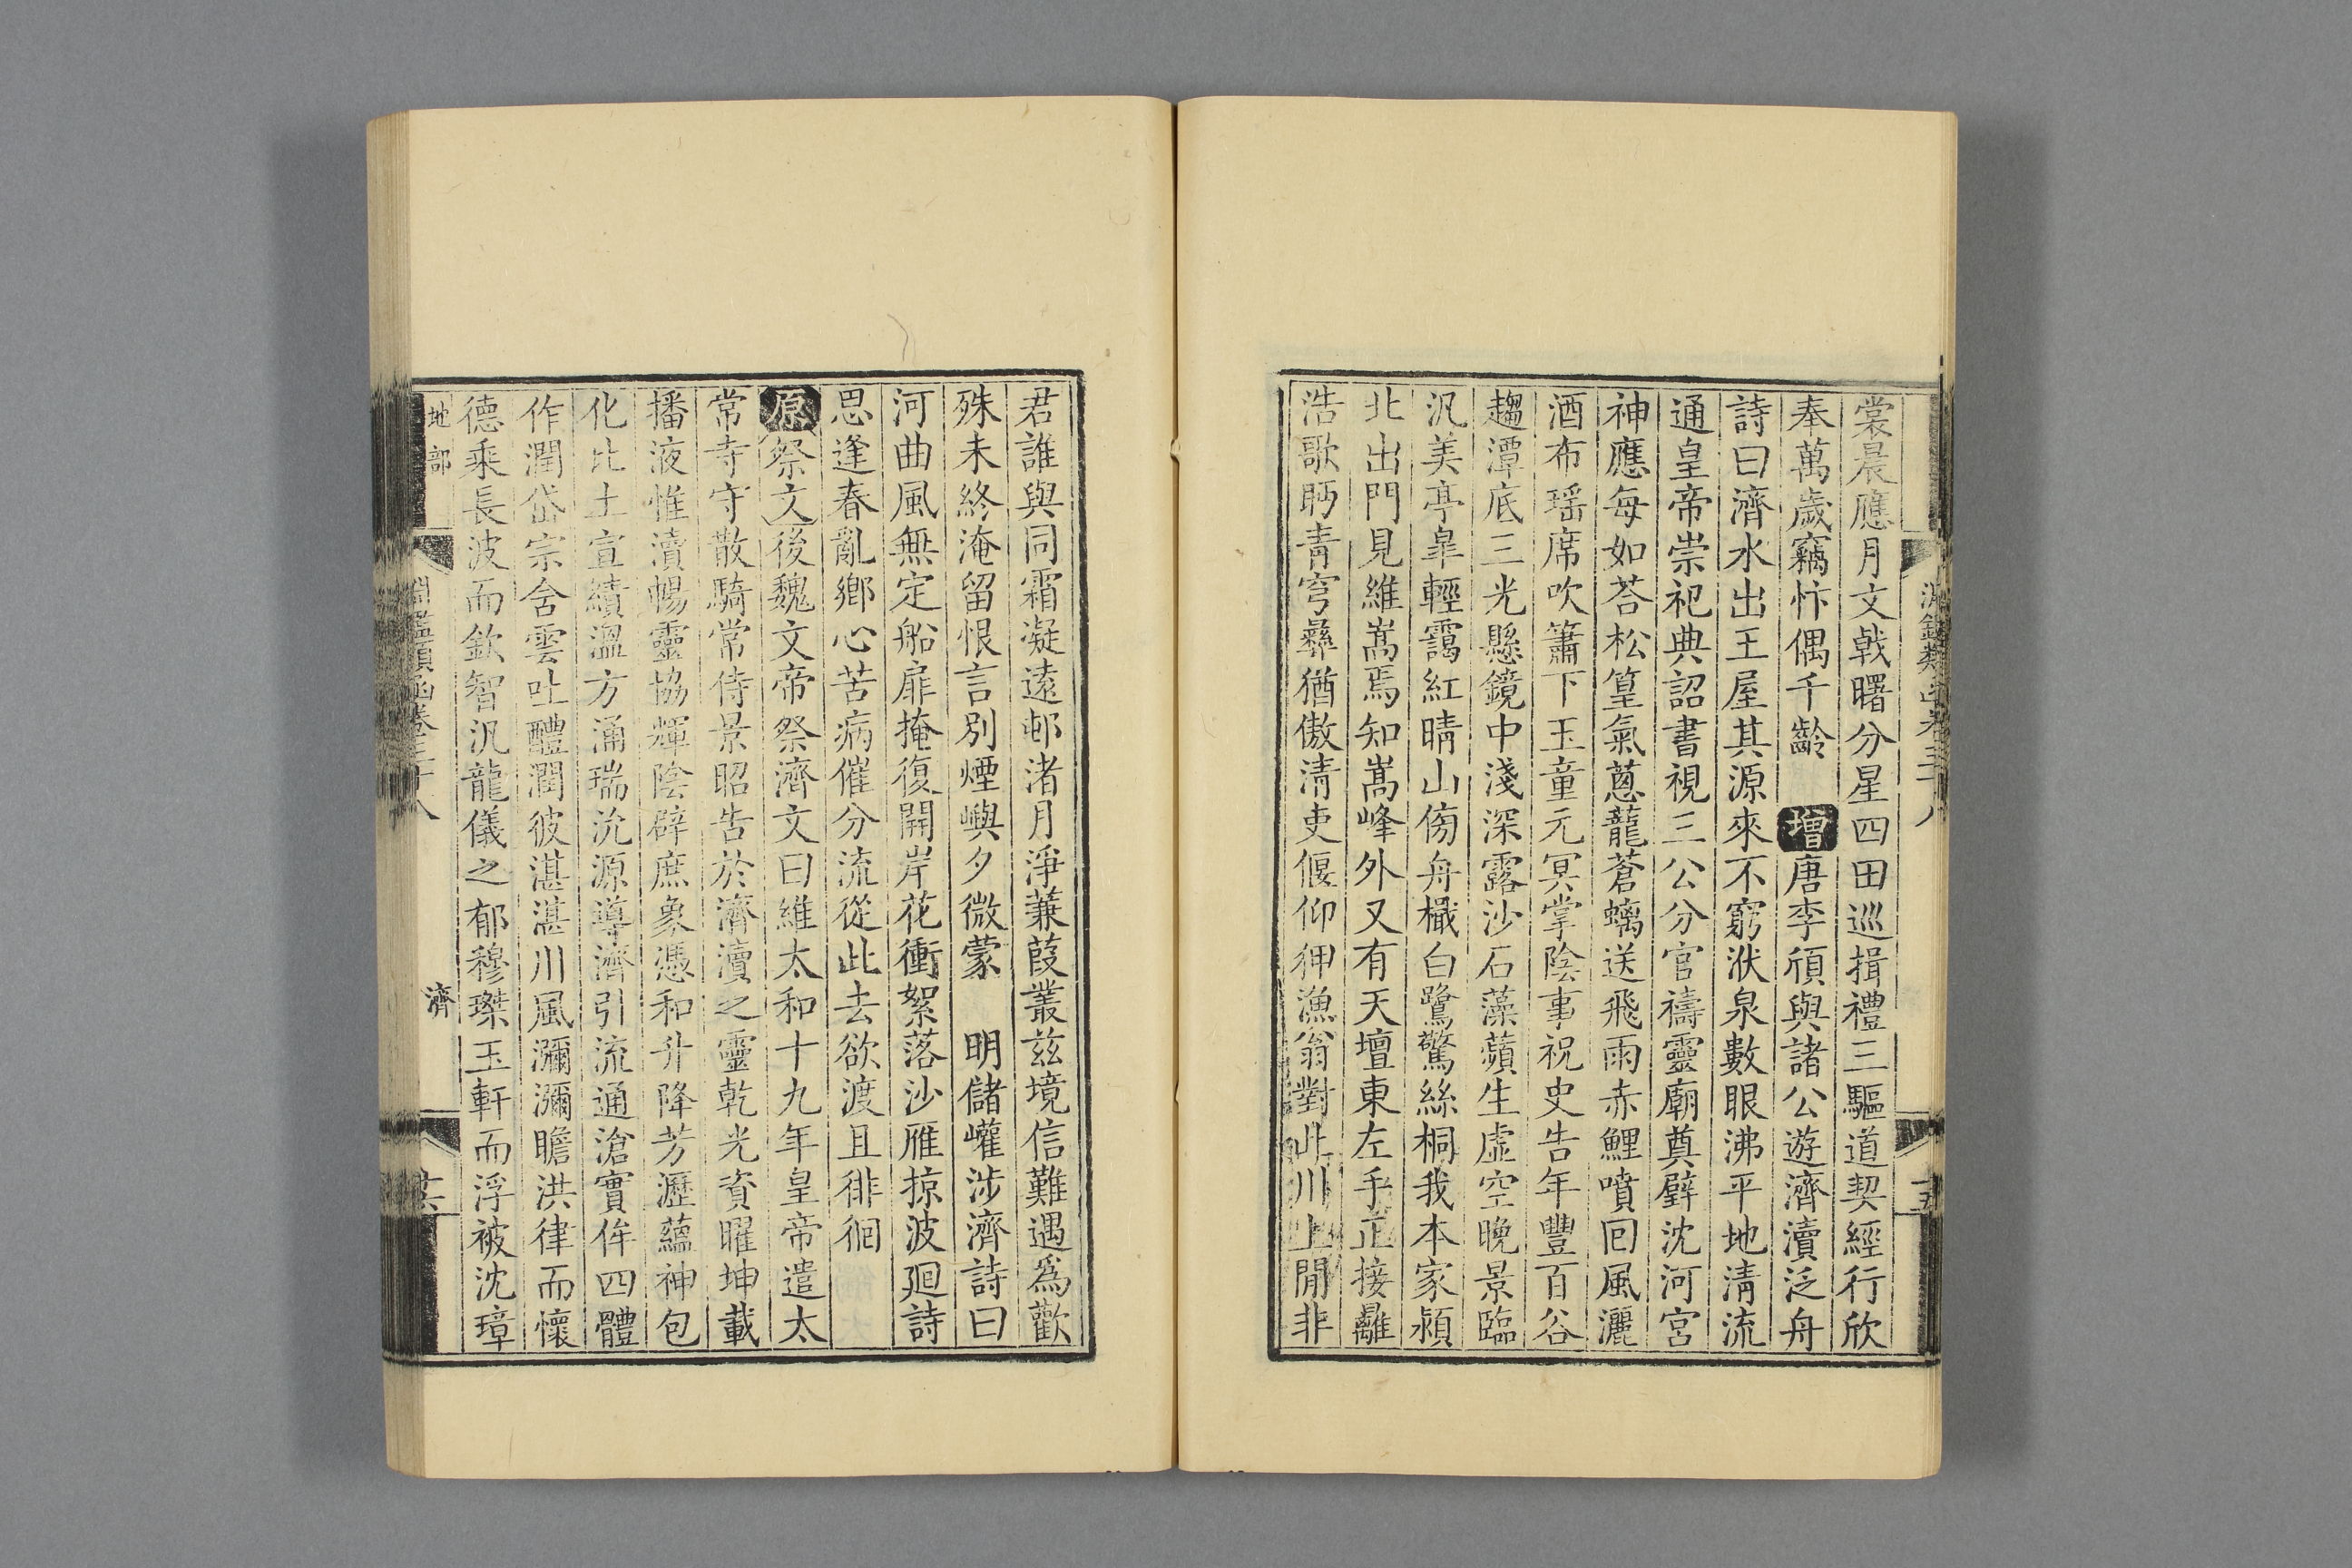 裳晨應月文戟曙分星四田巡揖禮三驅道契經行欣
奉萬歲竊忭偶千齡 增唐李頎與諸公遊濟瀆泛舟
詩曰濟水出王屋其源來不窮洑泉數眼沸平地清流
通皇帝崇祀典詔書視三公分官禱靈廟奠璧沈河宮
神應每如荅松篁氣蔥蘢蒼螭送飛雨赤鯉噴回風灑
酒布瑶席吹簫下玉童元冥掌陰事祝史告年豐百谷
趨潭底三光懸鏡中淺深露沙石藻蘋生虛空晚景臨
汎美亭皐輕靄紅晴山傍舟檝白鷺驚絲桐我本家潁
北出門見維嵩焉知嵩峰外又有天壇東左手正接䍦
浩歌眄青穹彝猶傲清吏偃仰狎漁翁對此川上閒非
君誰與同霜凝遠邨渚月淨蒹葭叢茲境信難遇爲歡
殊未終淹留恨言別煙嶼夕微蒙 明儲巏涉濟詩曰
河曲風無定船扉掩復開岸花衝絮落沙雁掠波廻詩
思逢春亂鄉心苦病催分流從此去欲渡且徘徊
原祭文後魏文帝祭濟文曰維太和十九年皇帝遣太
常寺守散騎常侍景昭告於濟瀆之靈乾光資曜坤載
播液惟瀆暢靈協輝陰辟庶象憑和升降芳瀝蘊神包
化比土宣績溫方涌瑞沇源導濟引流通滄實侔四體
作潤岱宗含雲吐醴潤彼湛湛川風瀰瀰瞻洪律而懷
德乘長波而欽智汎龍儀之郁穆璨玉軒而浮被沈璋
地部
淵鑑類函卷三十八
濟